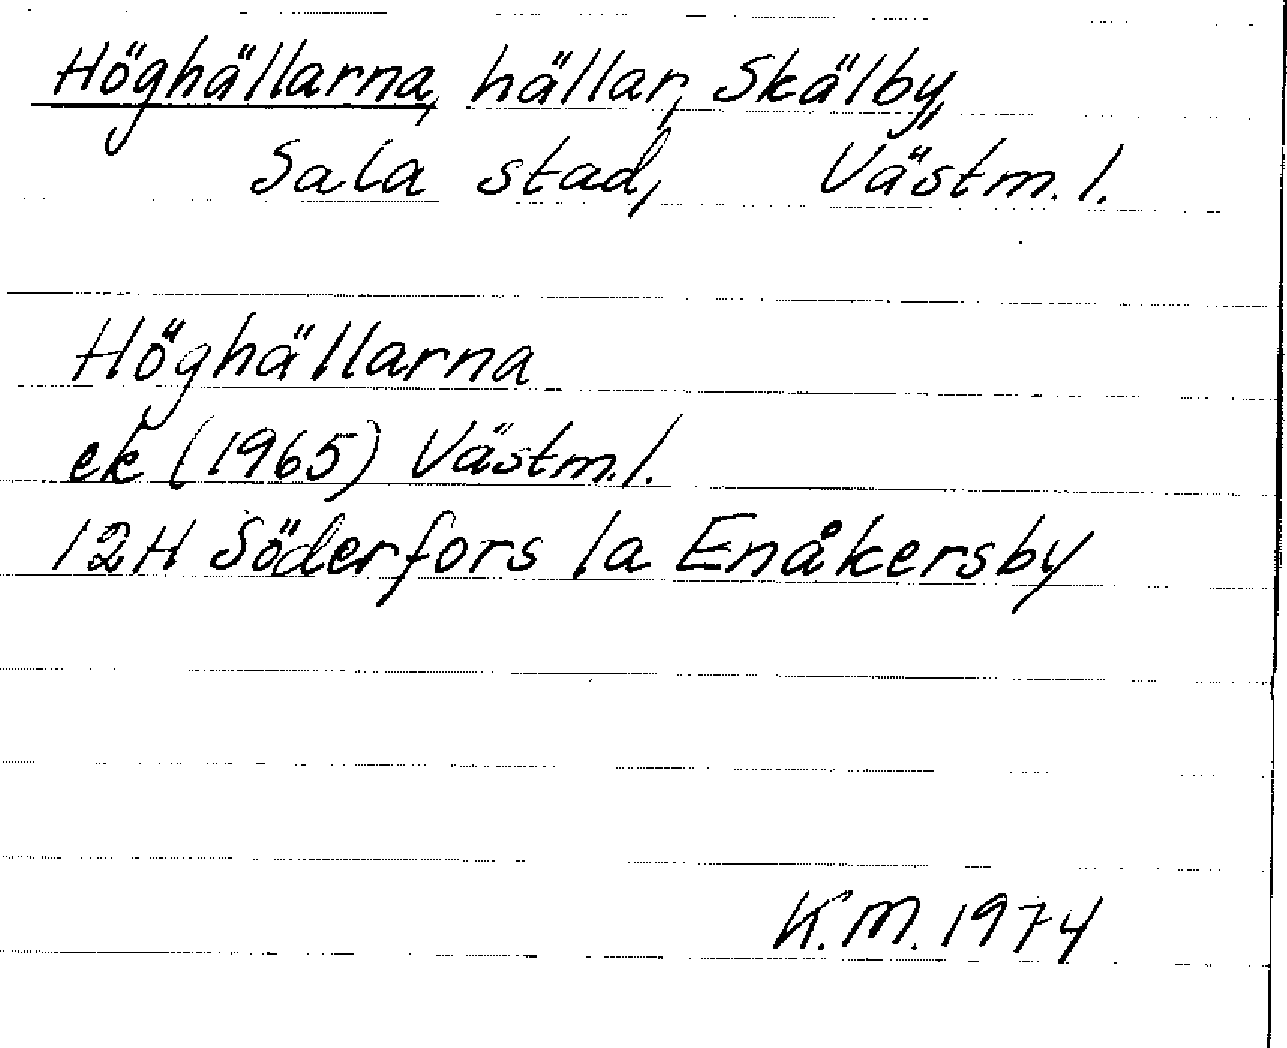 Höghällarna, hällar, Skälby,
Sala stad, Västm. l.
Höghällarna
ek (1965) Västm. l.
12H Söderfors 1a Enåkersby
K.M. 1974